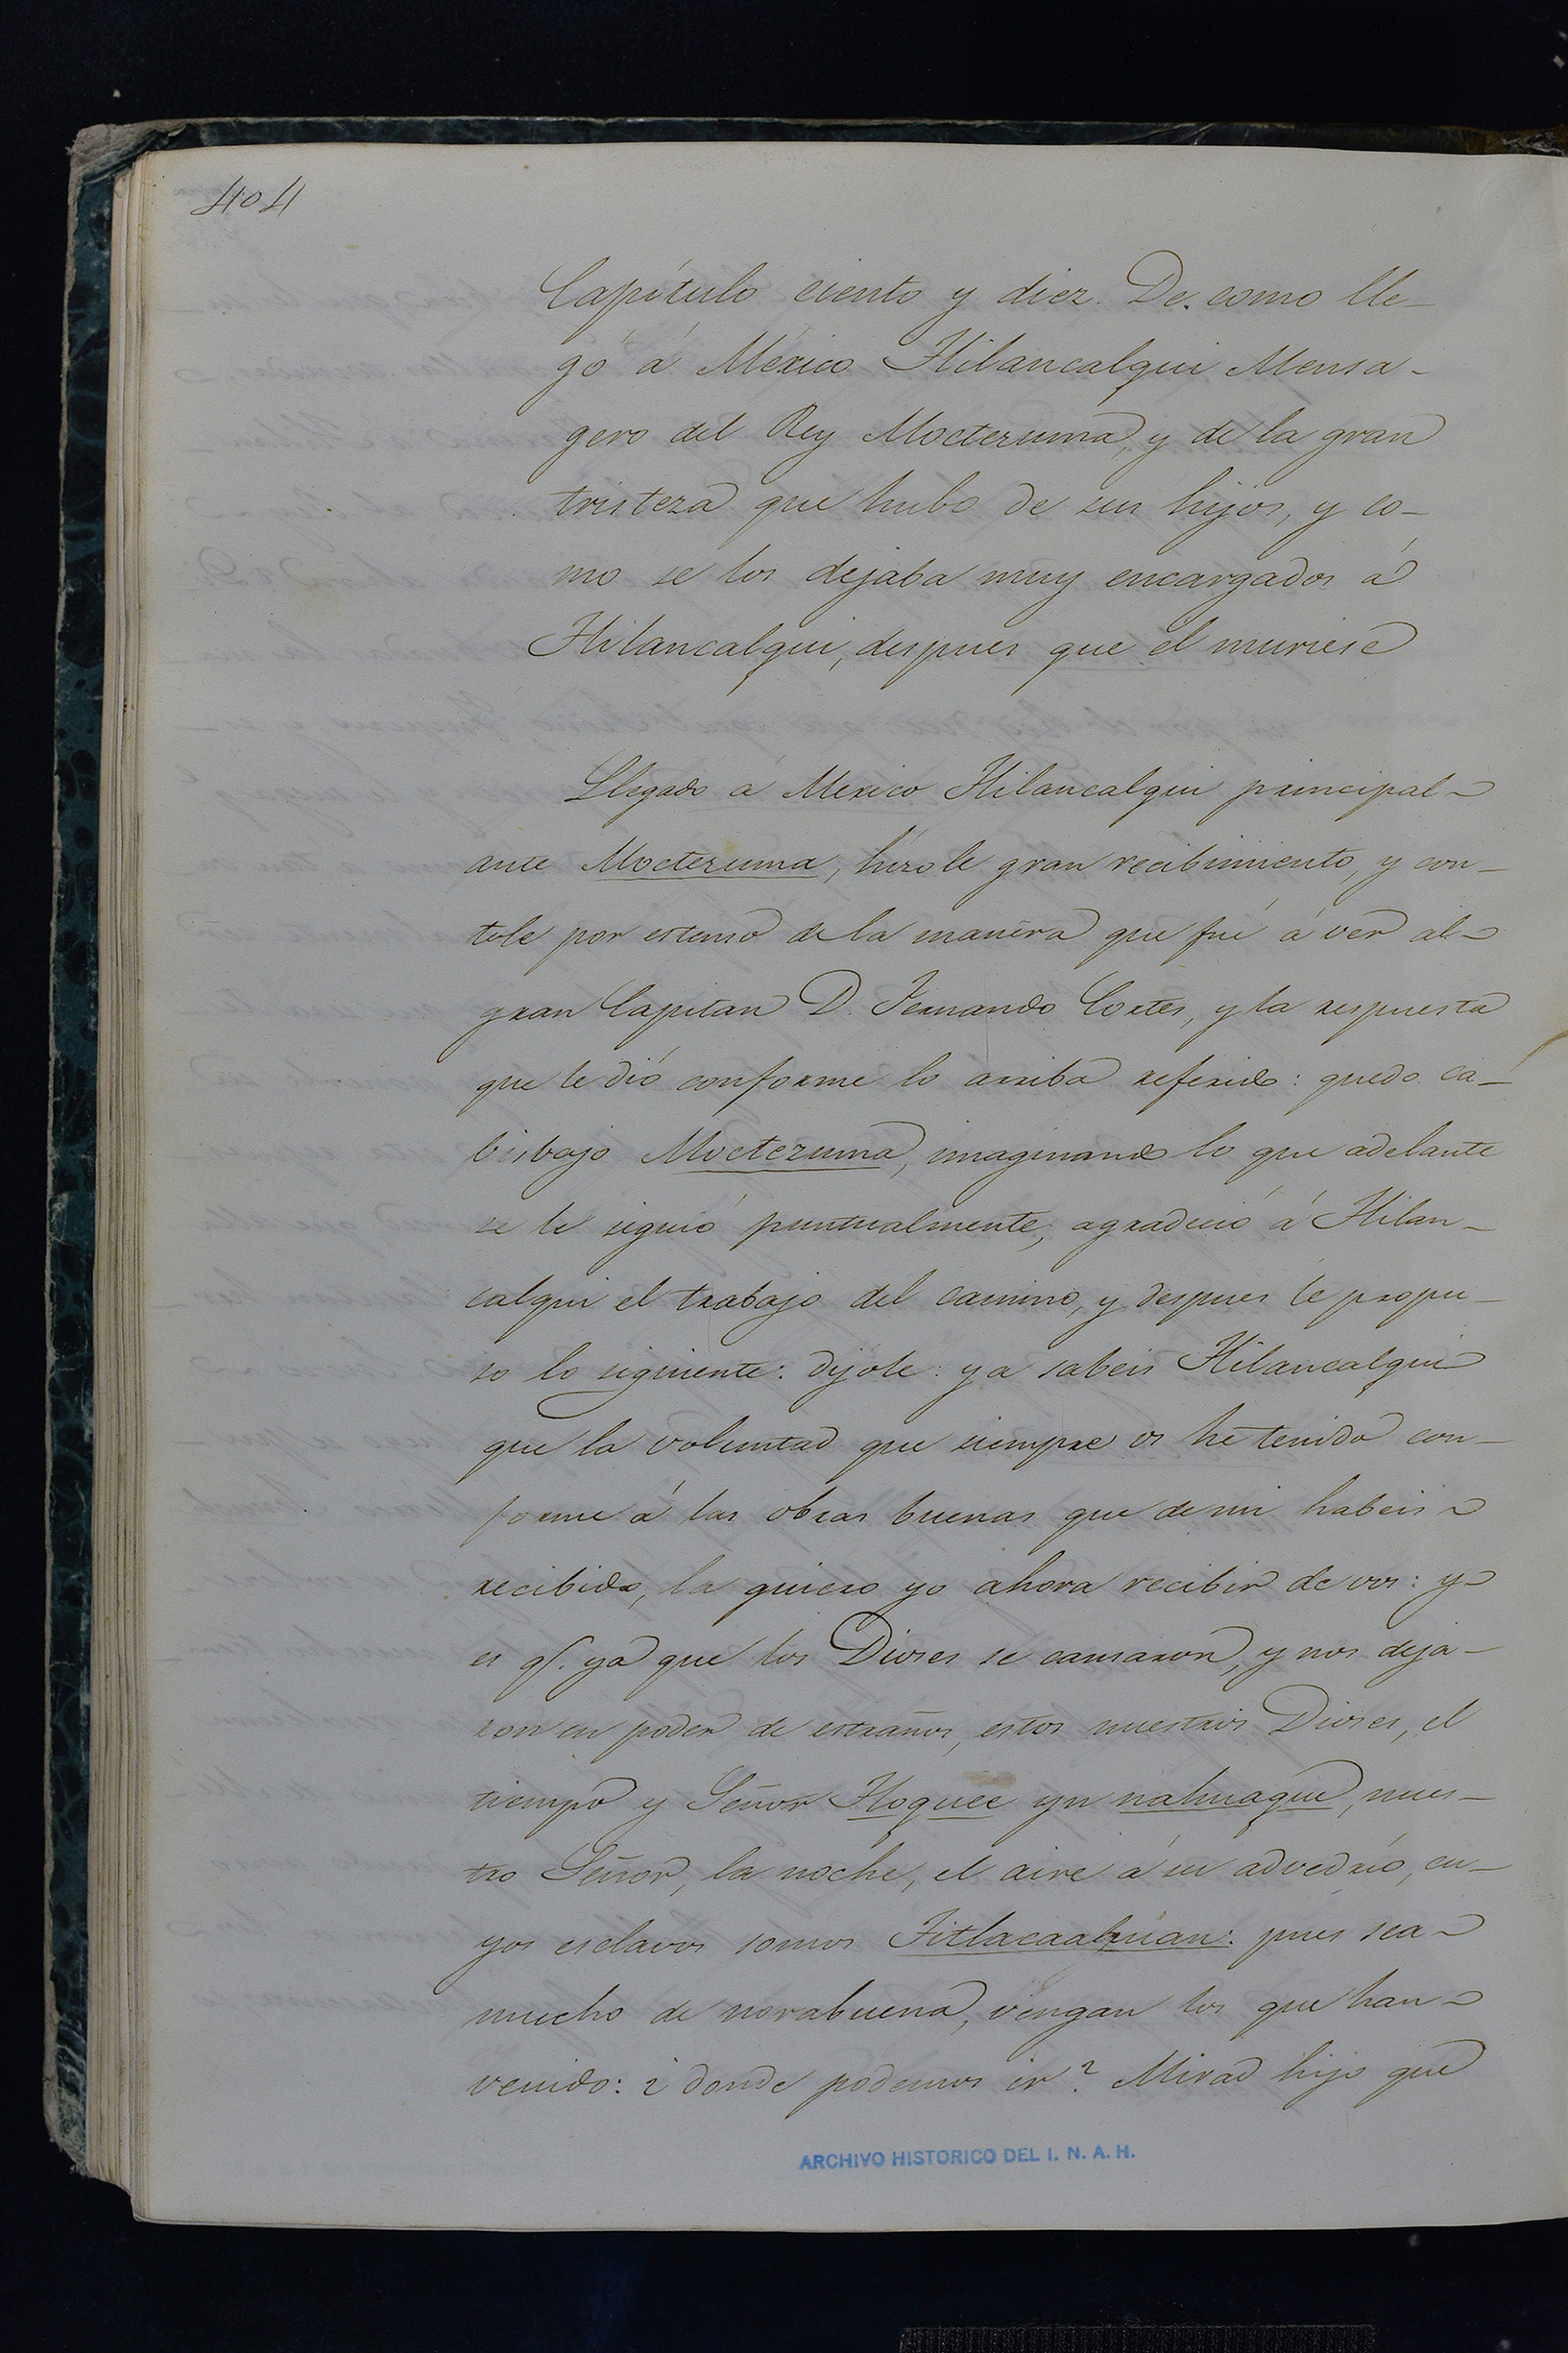 404
Capítulo ciento y diez. De como lle-
gó á México Hilancalqui Mensa-
gero del Rey Moctezuma, y de la gran
tristeza que hubo de sus hijos, y co-
mo se los dejaba muy encargados á
Hilancalqui, despues que el muriese
Llegado á Mexico Hilancalqui principal
ante Moctezuma, hízole gran recibimiento, y con-
tole por estenso de la manera que fué á ver al
gran Capitan D. Fernando Cortés, y la respuesta
que le dió conforme lo arriba referido: quedo ca-
bisbajo Moctezuma, imaginando lo que adelante
se le siguió puntualmente; agradeció á Hilan-
calqui el trabajo del camino, y despues le propu-
so lo siguiente: dijole: ya sabeis Hilancalqui
que la voluntad que siempre os he tenido con-
forme á las obras buenas que de mi habeis
recibido, la quiero yo ahora recibir de vos: y
es q. ya que los Dioses se cansaron, y nos deja-
ron en poder de estraños, estos nuestros Dioses, el
tiempo y Señor Hoquee yn nahuaque, nues-
tro Señor, la noche, el aire á su advedrió, cu-
yos esclavos somos Titlacaahuan: pues sea
mucho de norabuena, vengan los que han
venido: ¿donde podemos ir? Mirad hijo que
ARCHIVO HISTORICO DEL I. N. A. H.